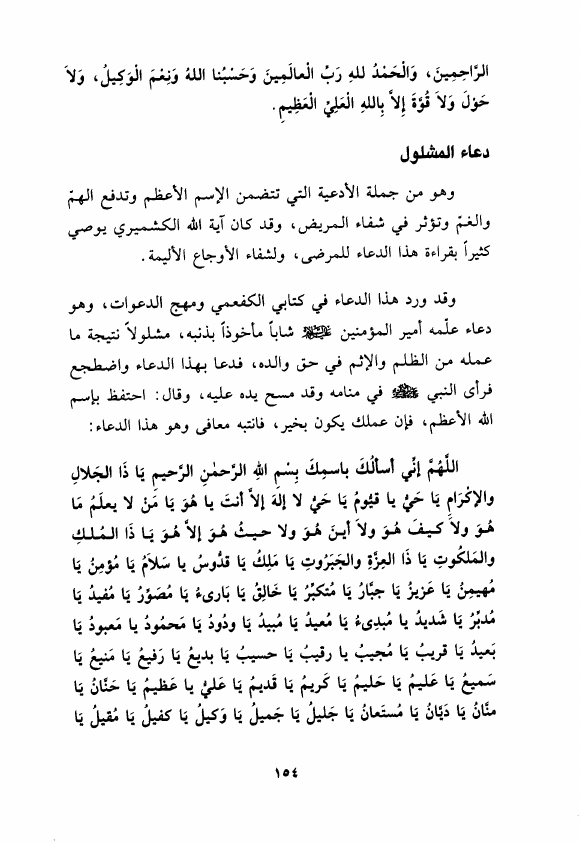 الرَّاحِمِينَ، وَالْحَمْدُ للهِ رَبِّ الْعالَمِينَ وَحَسْبُنا اللهُ وَنِعْمَ الْوَكِيلُ، وَلاَ
حَوْلَ وَلاَ قُوَّةَ إِلاَّ بِاللهِ الْعَلِيِّ الْعَظِيمِ.
دعاء المشلول
وهو من جملة الأدعية التي تتضمن الإسم الأعظم وتدفع الهمّ
والغمّ وتؤثر في شفاء المريض، وقد كان آية الله الكشميري يوصي
كثيراً بقراءة هذا الدعاء للمرضى، ولشفاء الأوجاع الأليمة.
وقد ورد هذا الدعاء في كتابي الكفعمي ومهج الدعوات، وهو
دعاء علّمه أمير المؤمنين شاباً مأخوذاً بذنبه، مشلولاً نتيجة ما
عمله من الظلم والإثم في حق والده، فدعا بهذا الدعاء واضطجع
فرأى النبي ﷺ في منامه وقد مسح يده عليه، وقال: احتفظ بإسم
الله الأعظم، فإن عملك يكون بخير، فانتبه معافى وهو هذا الدعاء:
اللَّهُمَّ إنِّي أسألُكَ باسمِكَ بِسْمِ اللهِ الرَّحمٰنِ الرَّحيمِ يَا ذَا الجَلالِ
والإكْرَامِ يَا حَيُّ يا قيُّومُ يَا حَيُّ لا إلهَ إلاَّ أنتَ يا هُوَ يَا مَنْ لا يعلَمُ مَا
هُوَ ولاَ كيفَ هُوَ ولاَ أينَ هُوَ ولا حيثُ هُوَ إلاَّ هُوَ يَا ذَا المُلكِ
والمَلكُوتِ يَا ذَا العِزَّةِ والجَبَرُوتِ يَا مَلِكُ يَا قدُّوسُ يا سَلاَمُ يَا مُؤمِنُ يَا
مُهيمِنُ يَا عَزيزُ يَا جبَّارُ يَا مُتكبِّرُ يَا خَالِقُ يَا بَارىءُ يَا مُصَوِّرُ يَا مُفيدُ يَا
مُدبِّرُ يَا شَديدُ يا مُبدِىءُ يَا مُعيدُ يَا مُبيدُ يَا ودُودُ يَا مَحمُودُ يا مَعبودُ يَا
بَعيدُ يَا قريبُ يَا مُجيبُ يا رقيبُ يَا حسيبُ يَا بديعُ يَا رَفيعُ يَا مَنيعُ يَا
سَميعُ يَا عَليمُ يَا حَليمُ يَا كَريمُ يَا قَديمُ يَا عَليُّ يا عَظيمُ يَا حَنَّانُ يَا
منَّانُ يَا دَيَّانُ يَا مُستَعانُ يَا جَليلُ يَا جَميلُ يَا وَكيلُ يَا كَفيلُ يَا مُقيلُ يَا
١٥٤